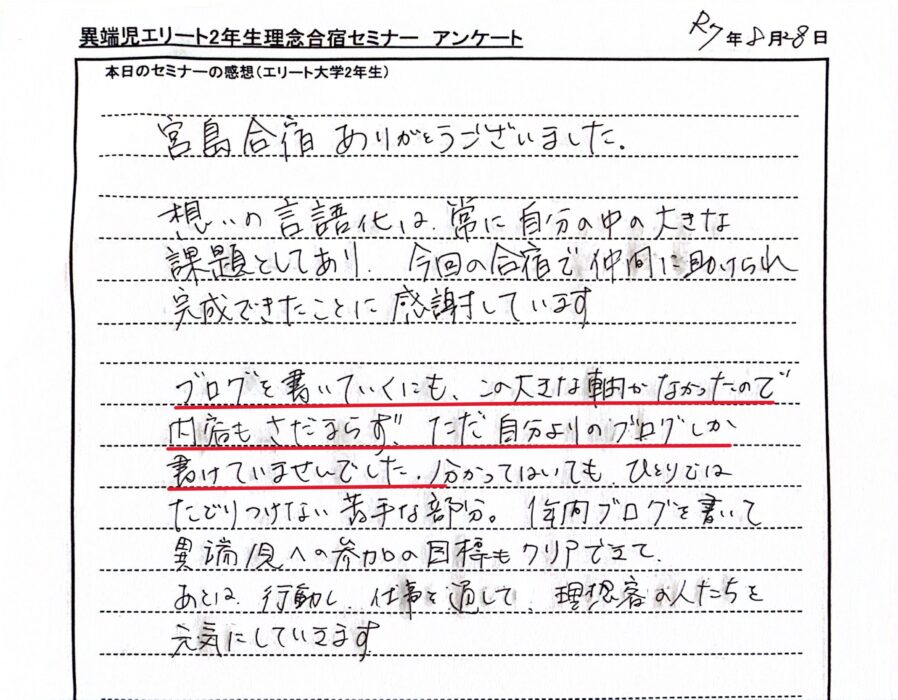 異端児エリート2年生理念合宿セミナー アンケート
R7年8月28日
本日のセミナーの感想(エリート大学2年生)
宮島合宿 ありがとうございました.
想いの言語化は 常に自分の中の大きな
課題としてあり. 今回の合宿で仲間に助けられ
完成できたことに感謝しています
ブログを書いていくにも、この大きな軸がなかったので
内容もさだまらず、ただ自分よりのブログしか
書けていませんでした. 分かってはいても ひとりでは
たどりつけない苦手な部分。 1年間ブログを書いて
異端児への参加の目標もクリアできて.
あとは 行動し、仕事を通して、理想客の人たちを
元気にしていきます